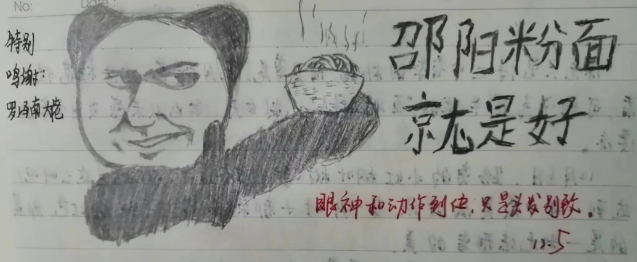 No:
Date:
特别
鸣谢:
罗玛南大佬
邵阳粉面
就是好
眼神和动作到位,只是头发别致。
12.5